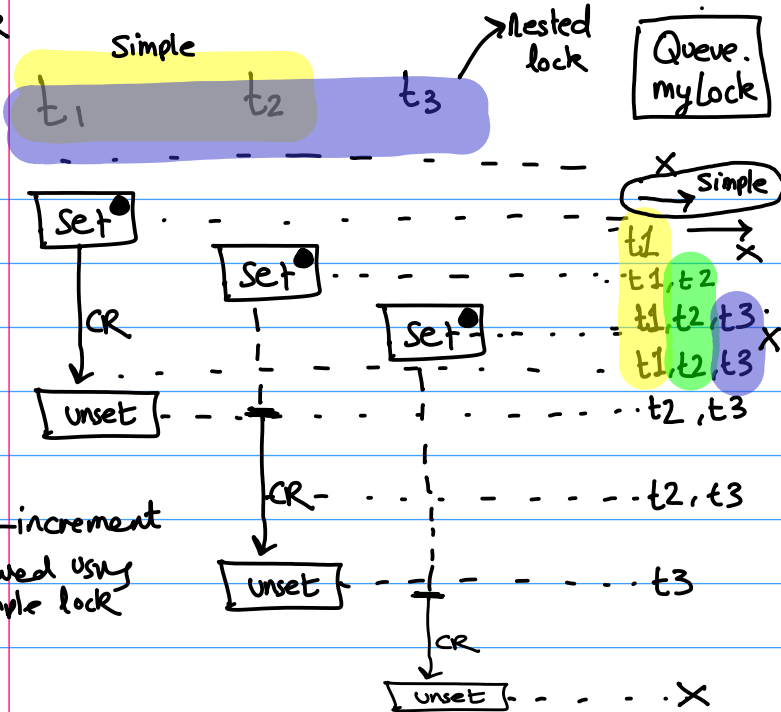 Simple
Nested
lock
Queue.
myLock
t1 t2 t3
X
Simple
Set
t1
X
Set
t1, t2
CR
Set
t1, t2, t3
X
t1, t2, t3
unset
t2, t3
CR
t2, t3
increment
using
lock
unset
t3
CR
unset
X